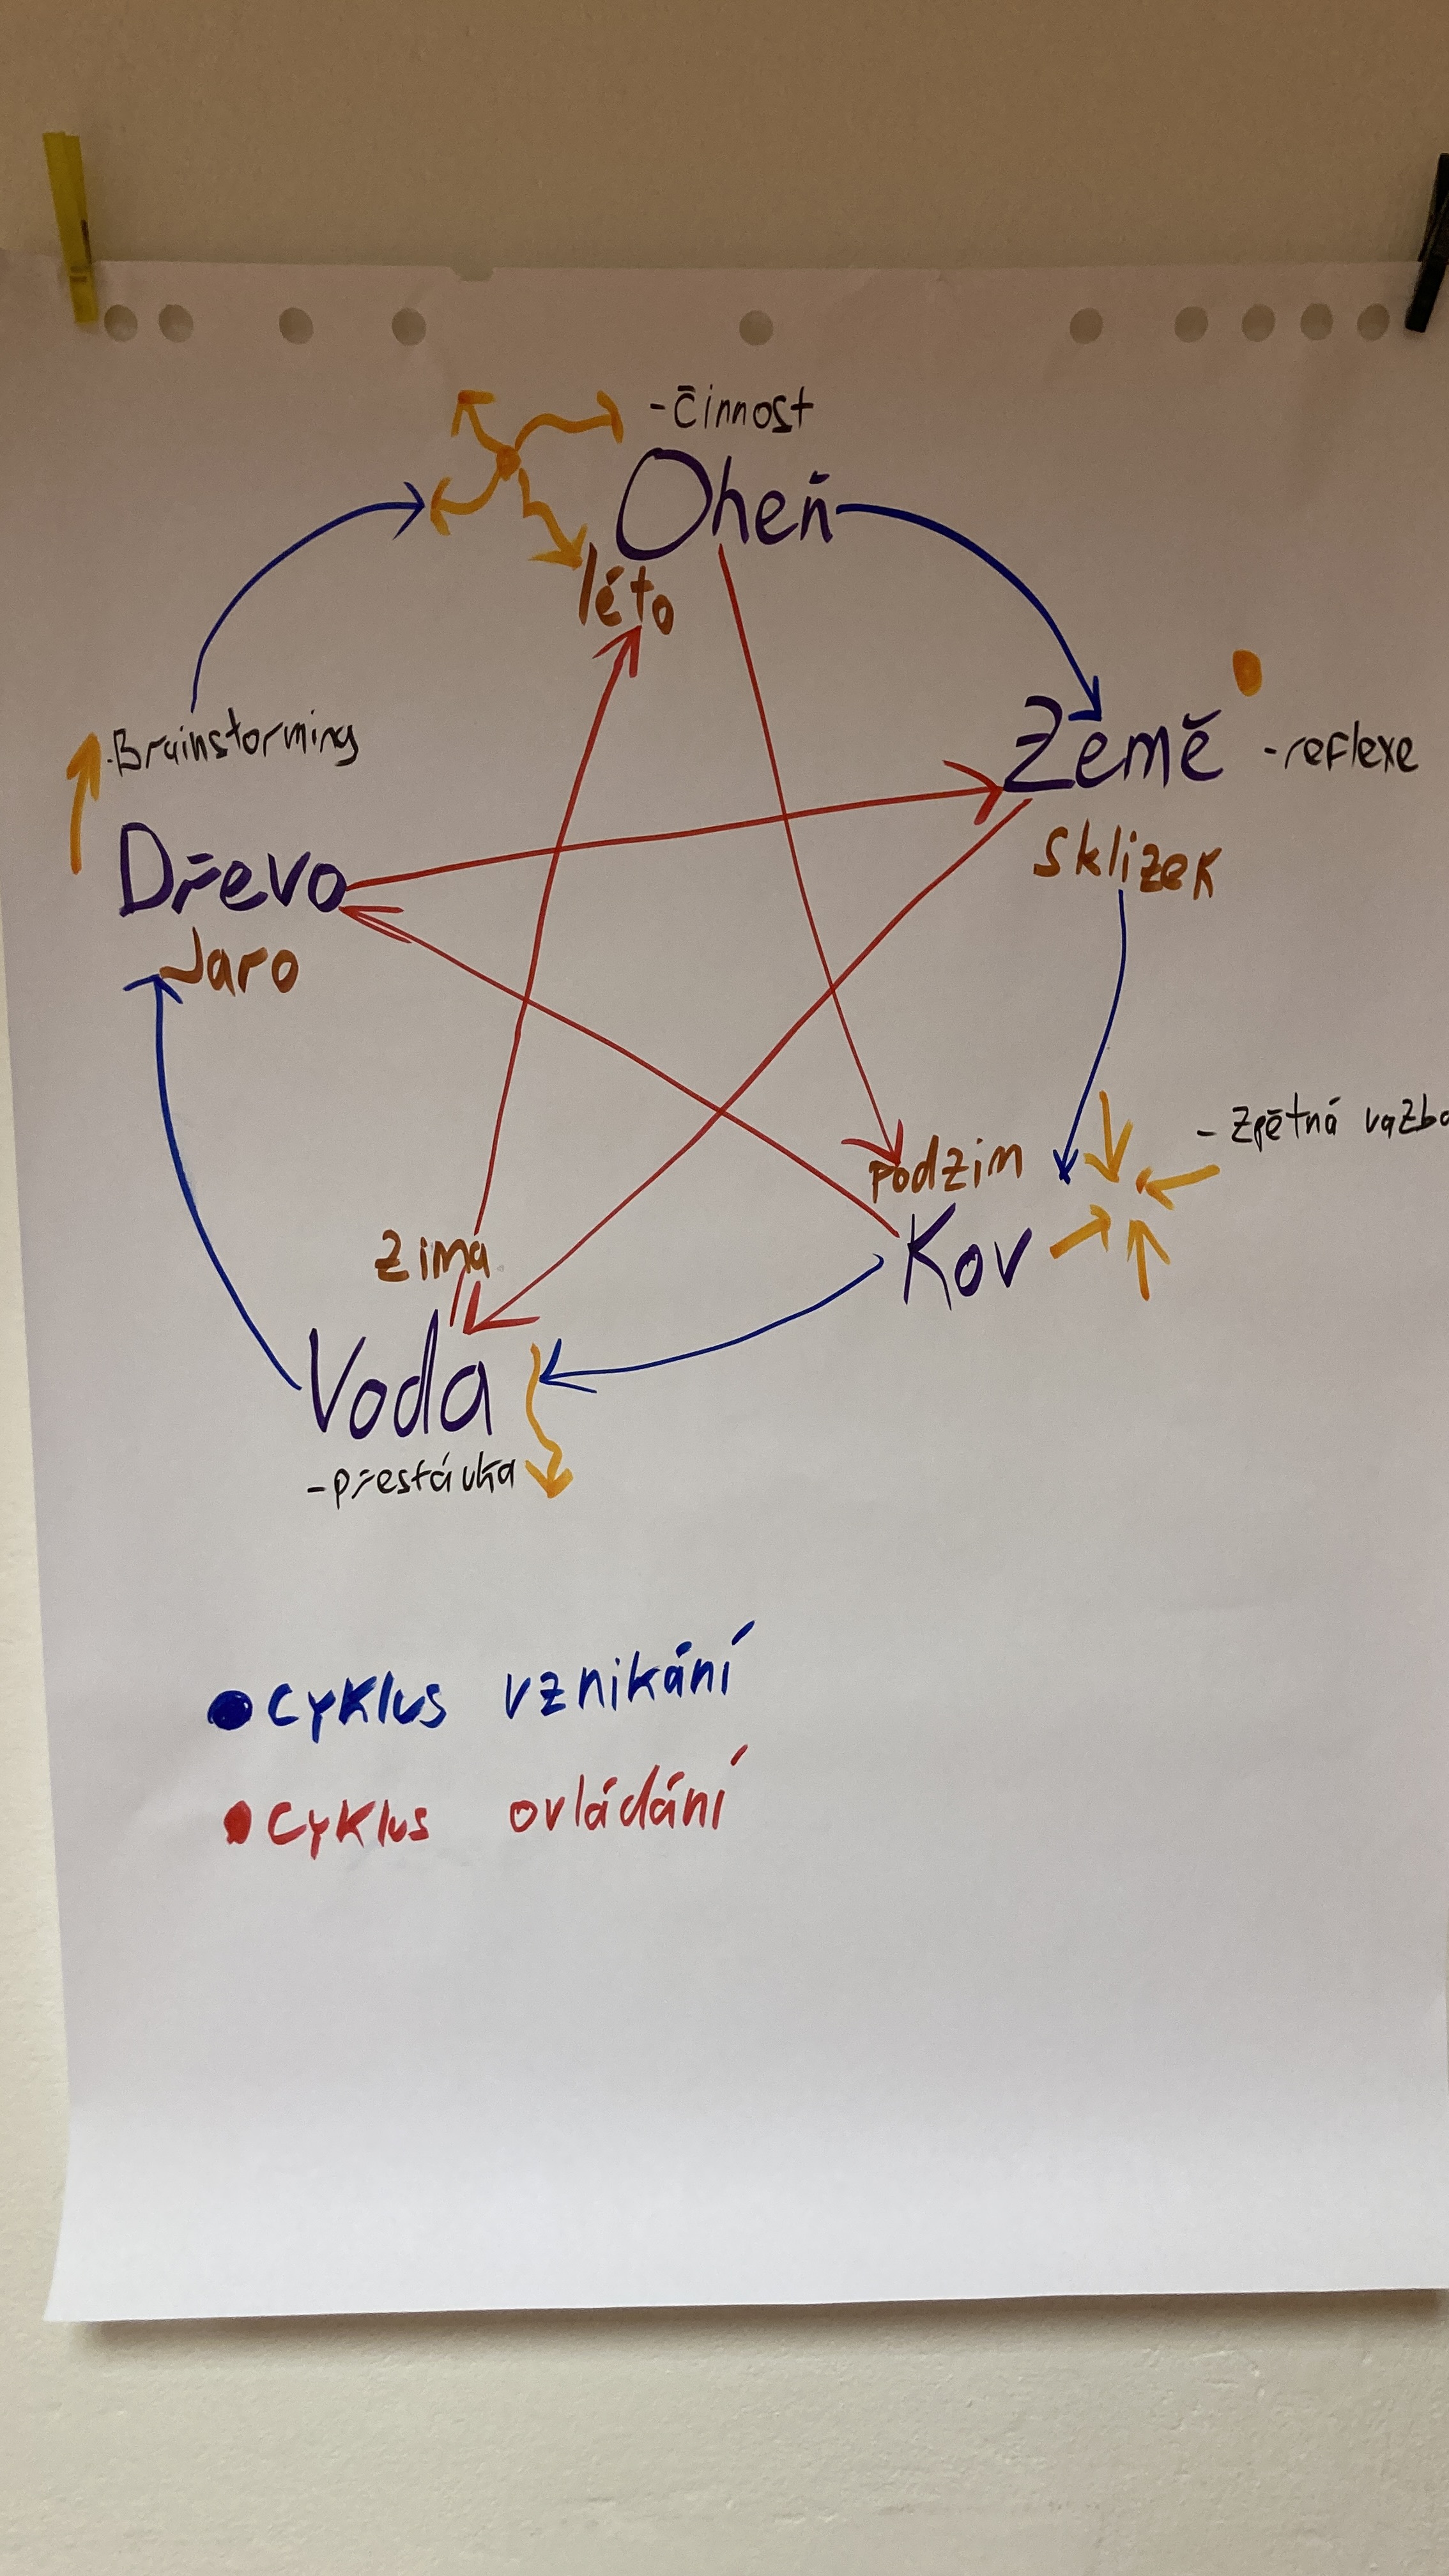 -činnost
Oheň
léto
-Brainstorming
Dřevo
Jaro
Země
-reflexe
Sklizek
- Zpětná vazba
podzim
Kov
zima
Voda
-přestávka
Cyklus vznikání
Cyklus ovládání